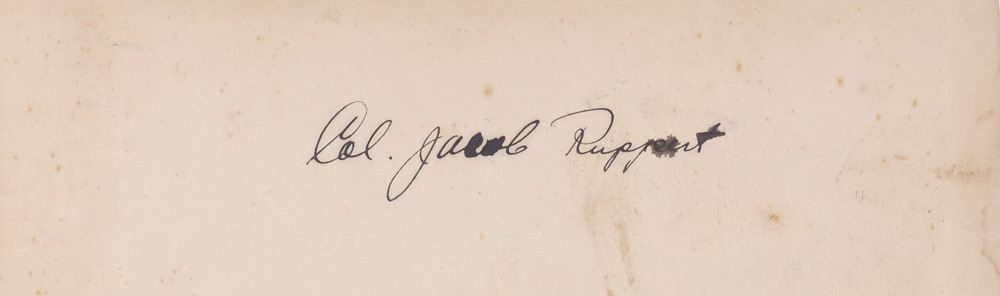 Col. Jacob Ruppert